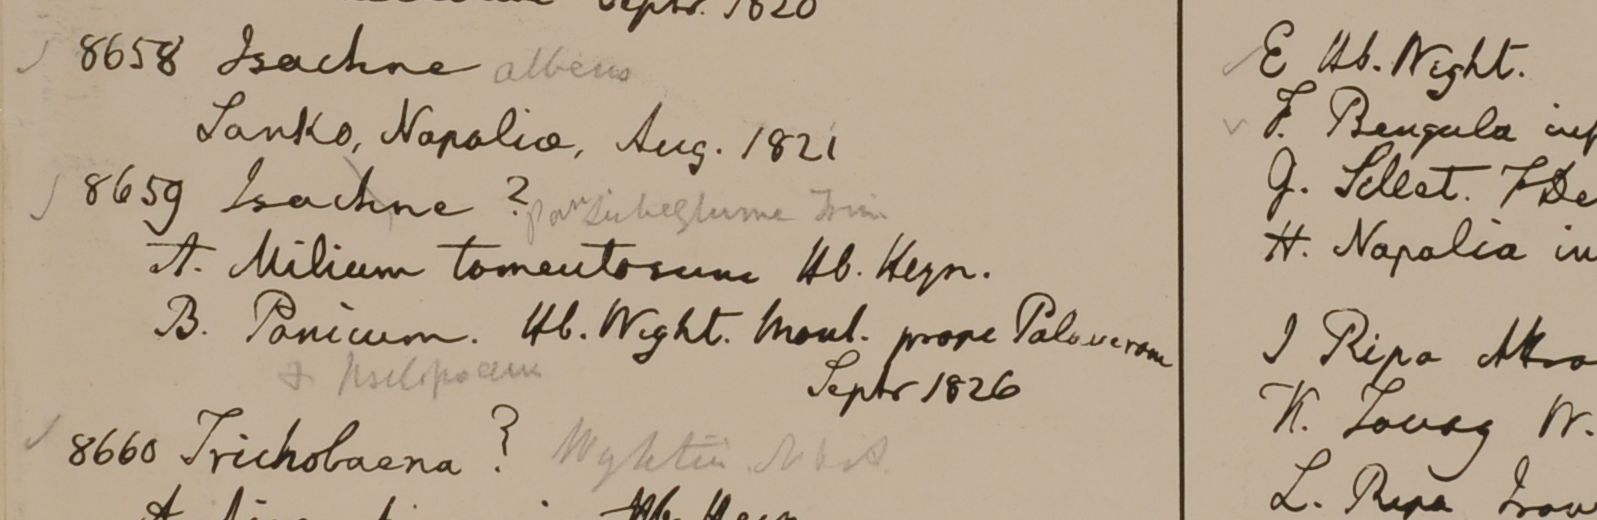 Septr. 1820
8658 Isachne albens
Sanko, Napalia, Aug. 1821
8659 Isachne ?
A. Milium tomentosum Hb. Heyn.
B. Panicum. Hb. Wight. Mont. prope Palaveram
Septr 1826
8660 Trichobaena ?
Hb. Heyn
E Hb. Wight.
F. Bengala
G. Sillet.
H. Napalia in
I Ripa
K. Tavoy W.
L. Ripa